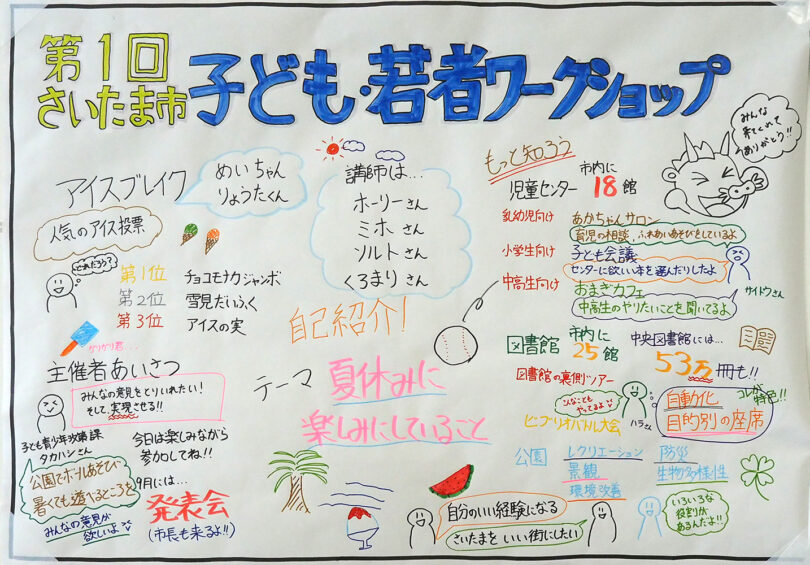 第1回
さいたま市
子ども・若者ワークショップ
みんな
来てくれて
ありがとう!!
アイスブレイク
めいちゃん
りょうたくん
人気のアイス投票
どれだろう?
第1位 チョコモナカジャンボ
第2位 雪見だいふく
第3位 アイスの実
ガリガリ君...
講師は...
ホーリーさん
ミホさん
ソルトさん
くろまりさん
自己紹介!
主催者あいさつ
みんなの意見をとりいれたい!
そして、実現させる!!
子ども青少年政策課
タカハシさん
今日は楽しみながら
参加してね!!
公園でボールあそび
暑くても遊べるところを
みんなの意見が
欲しいよ
9月には...
発表会
(市長も来るよ!!)
テーマ
夏休みに
楽しみにしていること
自分のいい経験になる
さいたまをいい街にしたい
もっと知ろう
市内に
児童センター 18館
乳幼児向け あかちゃんサロン
育児の相談、ふれあいあそびをしているよ
小学生向け 子ども会議
センターに欲しい本を選んだりしたよ
中高生向け おまぎカフェ
中高生のやりたいことを聞いてるよ
サイトウさん
図書館 市内に
25館
中央図書館には...
53万冊も!!
図書館の裏側ツアー
こんなことも
やってるよ
ビブリオバトル大会
ハラさん
コレが
特色!!
自動化
目的別の座席
公園
レクリエーション
景観
環境改善
防災
生物多様性
いろいろな
役割が
あるんだよ!!